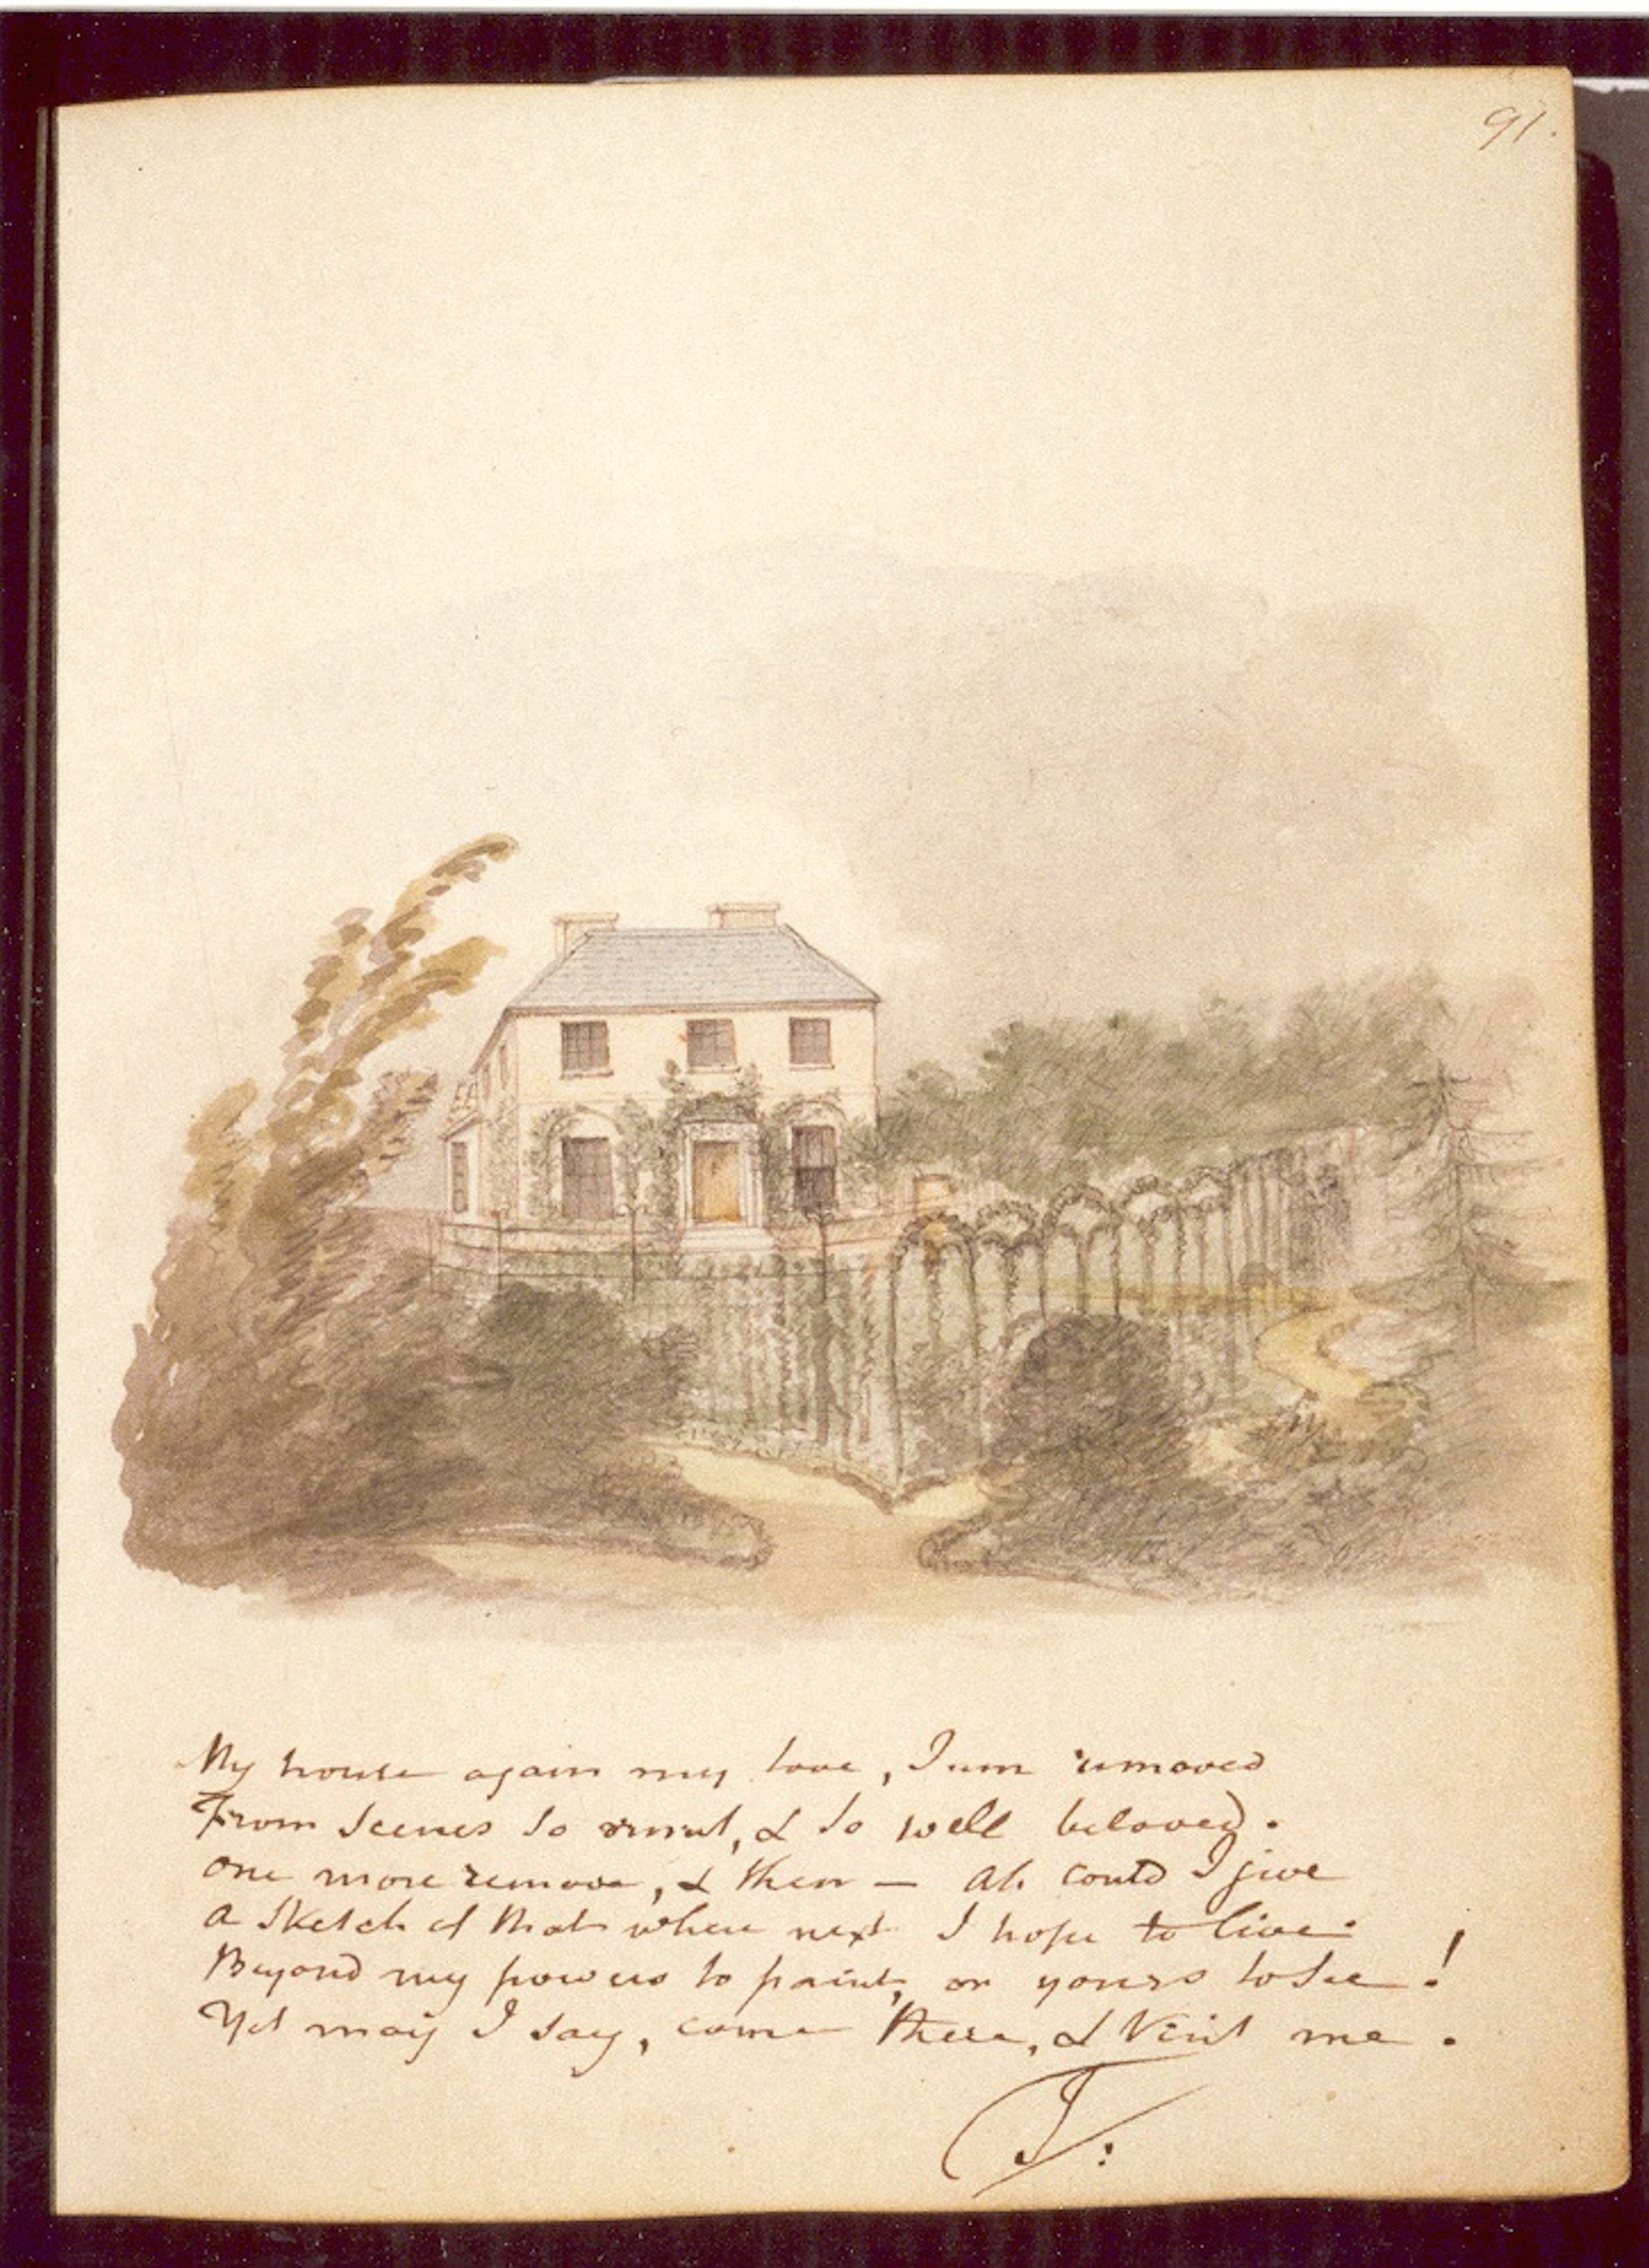 91.
My house again my love, I am removed
From scenes so sweet, & so well beloved.
One more remove, & then — Ah could I give
a Sketch of that where next I hope to live.
Beyond my powers to paint, or yours to see!
Yet may I say, come there, & Visit me.